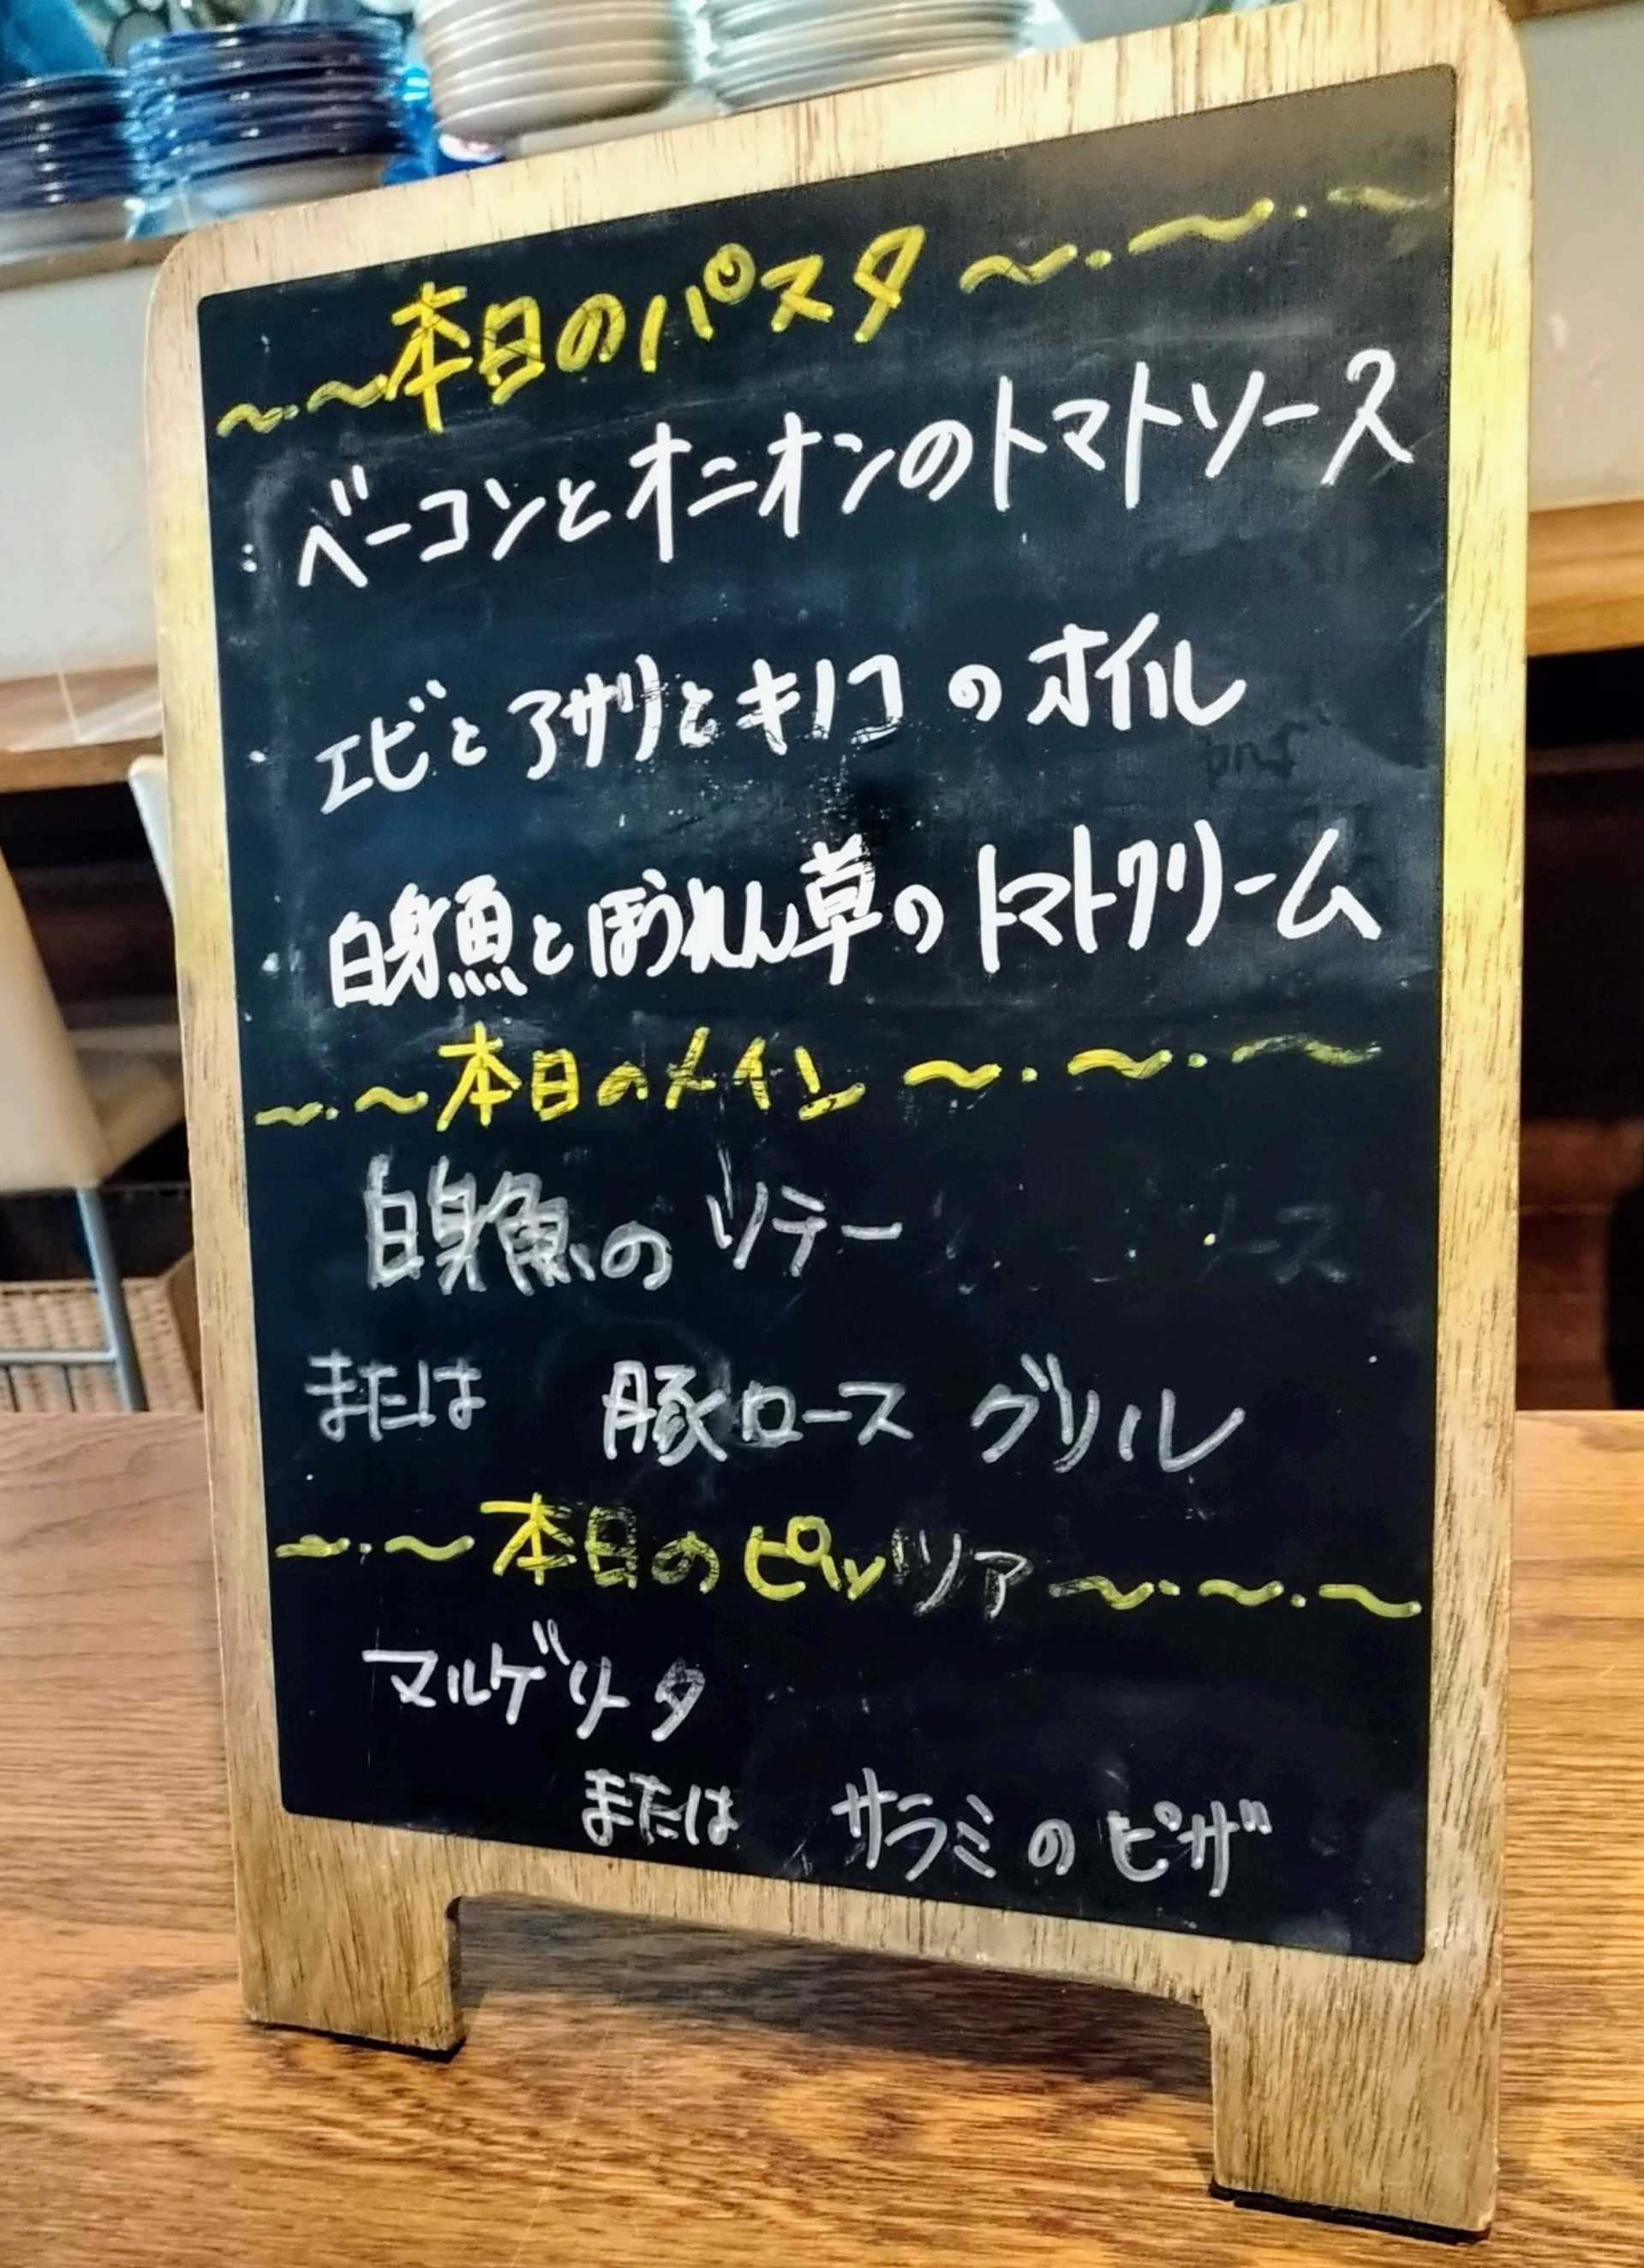 本日のパスタ
ベーコンとオニオンのトマトソース
エビとアサリとキノコのオイル
白身魚とほうれん草のトマトクリーム
本日のメイン
白身魚の ソテー
または 豚ロース グリル
本日のピッツァ
マルゲリータ
または サラミのピザ